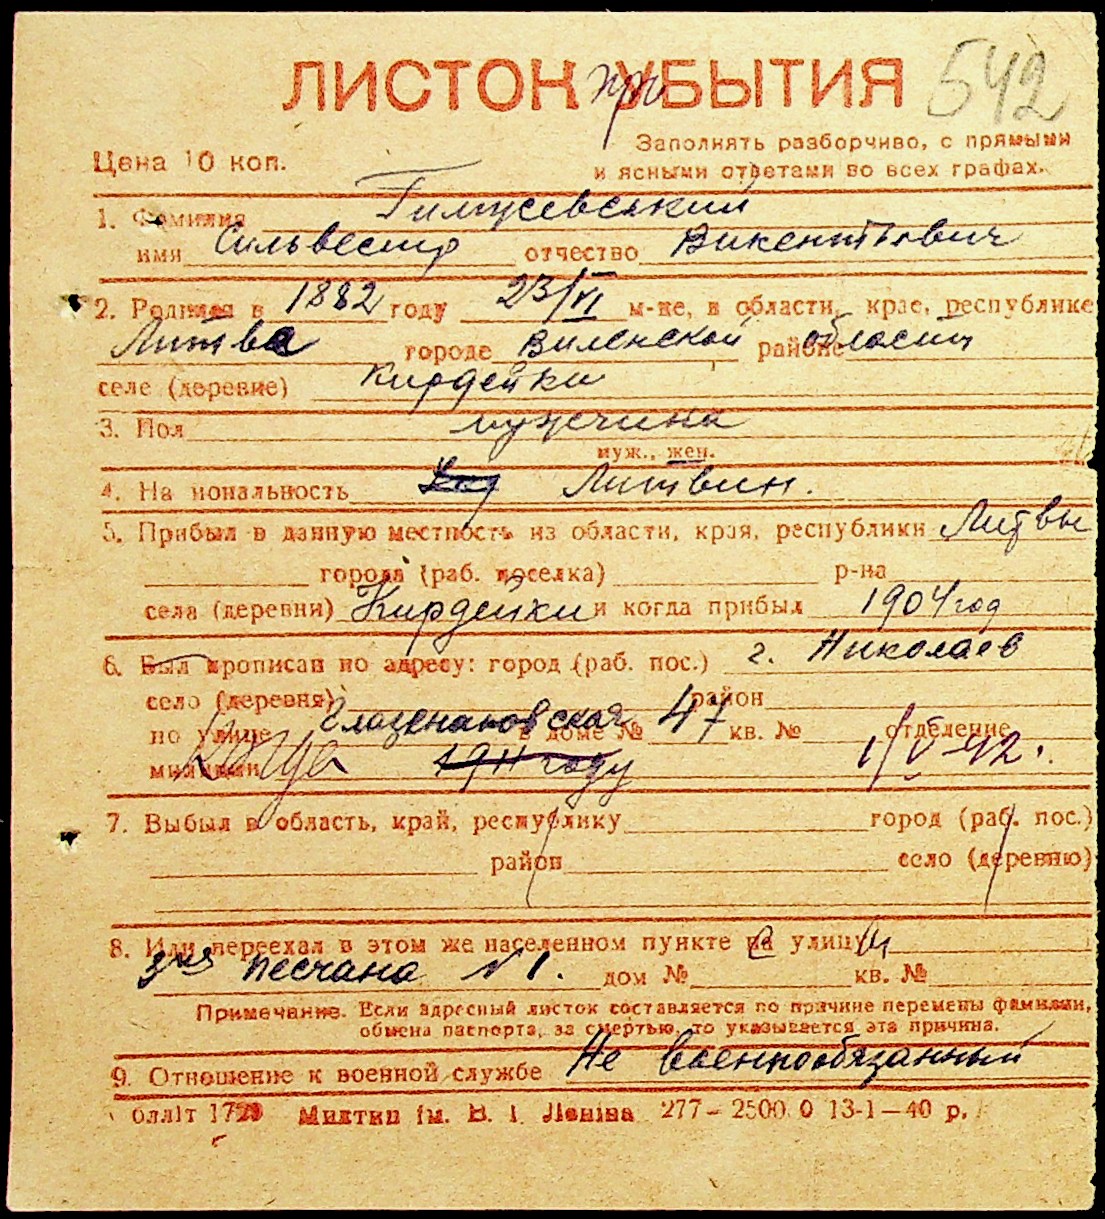 ЛИСТОК при УБЫТИЯ 542
Заполнять разборчиво, с прямыми
Цена 10 коп. и ясными ответами во всех графах.
1. Фамилия
имя Сильвестр отчество Викентьевич
2. Родился в 1882 году 23/VI м-це, в области, крае, республике
Литва городе Виленской районе области
селе (деревне) Кирдейки
3. Пол мужчина
муж., жен.
4. Национальность Литвин.
5. Прибыл в данную местность из области, края, республики Литвы
города (раб. поселка) р-на
села (деревни) Кирдейки и когда прибыл 1904 год
6. Был прописан по адресу: город (раб. пос.) г. Николаев
село (деревня) район
по улице Глазенаповская в доме № 47 кв. № отделение
милиции Когда 1911 году 1/V-42.
7. Выбыл в область, край, республику город (раб. пос.)
район село (деревню)
8. Или переехал в этом же населенном пункте на улицу
3я песчана N 1. дом № кв. №
Примечание. Если адресный листок составляется по причине перемены фамилии,
обмена паспорта, за смертью, то указывается эта причина.
9. Отношение к военной службе Не военнообязанный
олліт 1729 ім. В. І. Леніна 277-2500 0 13-1-40 р.